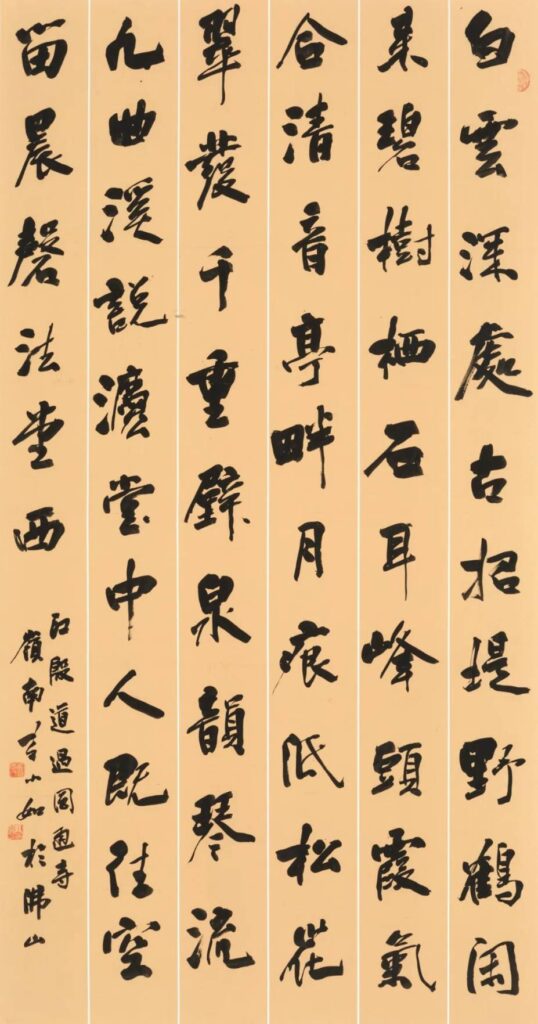 白雲深處古招堤野鶴閑
来碧樹栖石耳峰頭霞氣
合清音亭畔月痕低松花
翠發千重壁泉韻琴流
九曲溪説濂堂中人既往空
留晨磬法堂西
江殷道過圓通寺
嶺南李小如於佛山